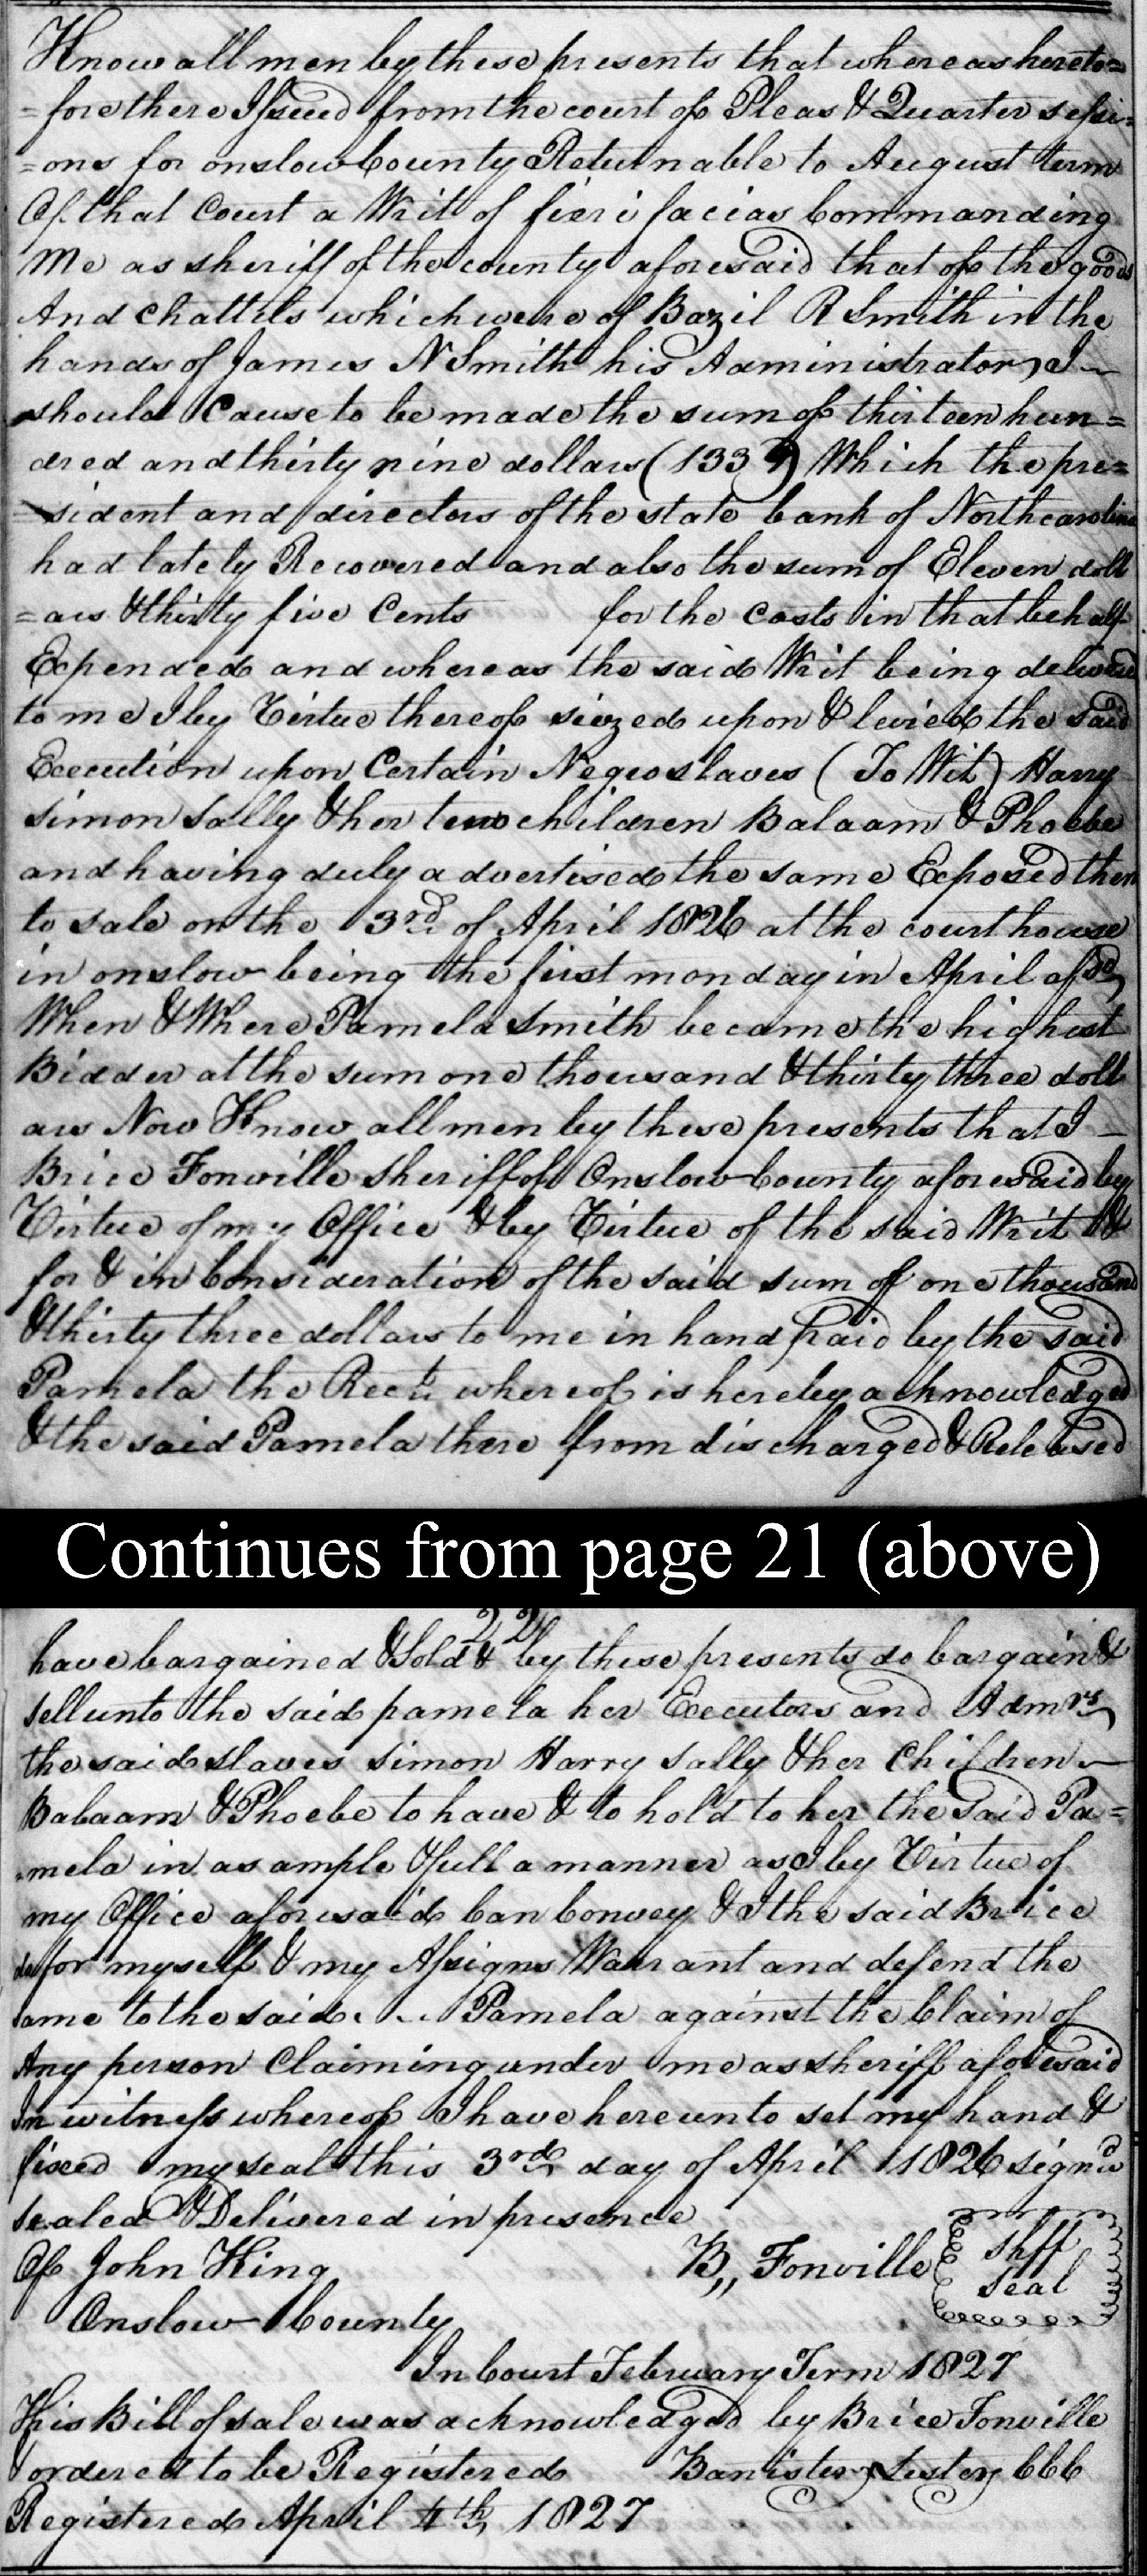 Know all men by these presents that whereas hereto=
=fore there Issued from the court of Pleas & Quarter sessi=
=ons for onslow County Returnable to August term
Of that Court a Writ of fieri facias Commanding
Me as sheriff of the county aforesaid that of the goods
And chattels which were of Bazil R Smith in the
hands of James N Smith his Administrator, I
should Cause to be made the sum of thirteen hun=
dred and thirty nine dollars (1339) Which the pre=
=sident and directors of the state bank of North carolina
had lately Recovered and also the sum of Eleven doll
=ars & thirty five Cents for the Costs in that behalf
Expended and whereas the said Writ being delivered
to me I by Virtue thereof siezed upon & levied the said
Execution upon Certain Negro slaves (To Wit) Harry
simon sally & her two children Balaam & Phoebe
and having duly advertised the same Exposed them
to sale on the 3rd of April 1826 at the court house
in onslow being the first monday in April afsd
When & Where Pamela Smith became the highest
Bidder at the sum one thousand & thirty three doll
ars Now Know all men by these presents that I
Brice Fonville Sheriff of Onslow County aforesaid by
Virtue of my Office & by Virtue of the said Writ &
for & in Consideration of the said sum of one thousand
& thirty three dollars to me in hand paid by the said
Pamela the Rect whereof is hereby acknowledged
& the said Pamela there from discharged & Released
Continues from page 21 (above)
22
have bargained & Sold & by these presents do bargain &
sell unto the said pamela her Executors and Admrs
the said slaves simon Harry sally & her Children
Balaam & Phoebe to have & to hold to her the said Pa=
mela in as ample & full a manner as I by Virtue of
my Office aforesaid Can Convey & I the said Brice
for myself & my Assigns Warrant and defend the
same to the said Pamela against the Claim of
Any person Claiming under me as sheriff aforesaid
In witness whereof I have hereunto set my hand &
fixed my seal this 3rd day of April 1826 signd
sealed & Delivered in presence
Of John King B,, Fonville Shff
Seal
Onslow County
In Court February Term 1827
This Bill of sale was acknowledged by Brice Fonville
& ordered to be Registered Banister Lester CCC
Registered April 4th, 1827